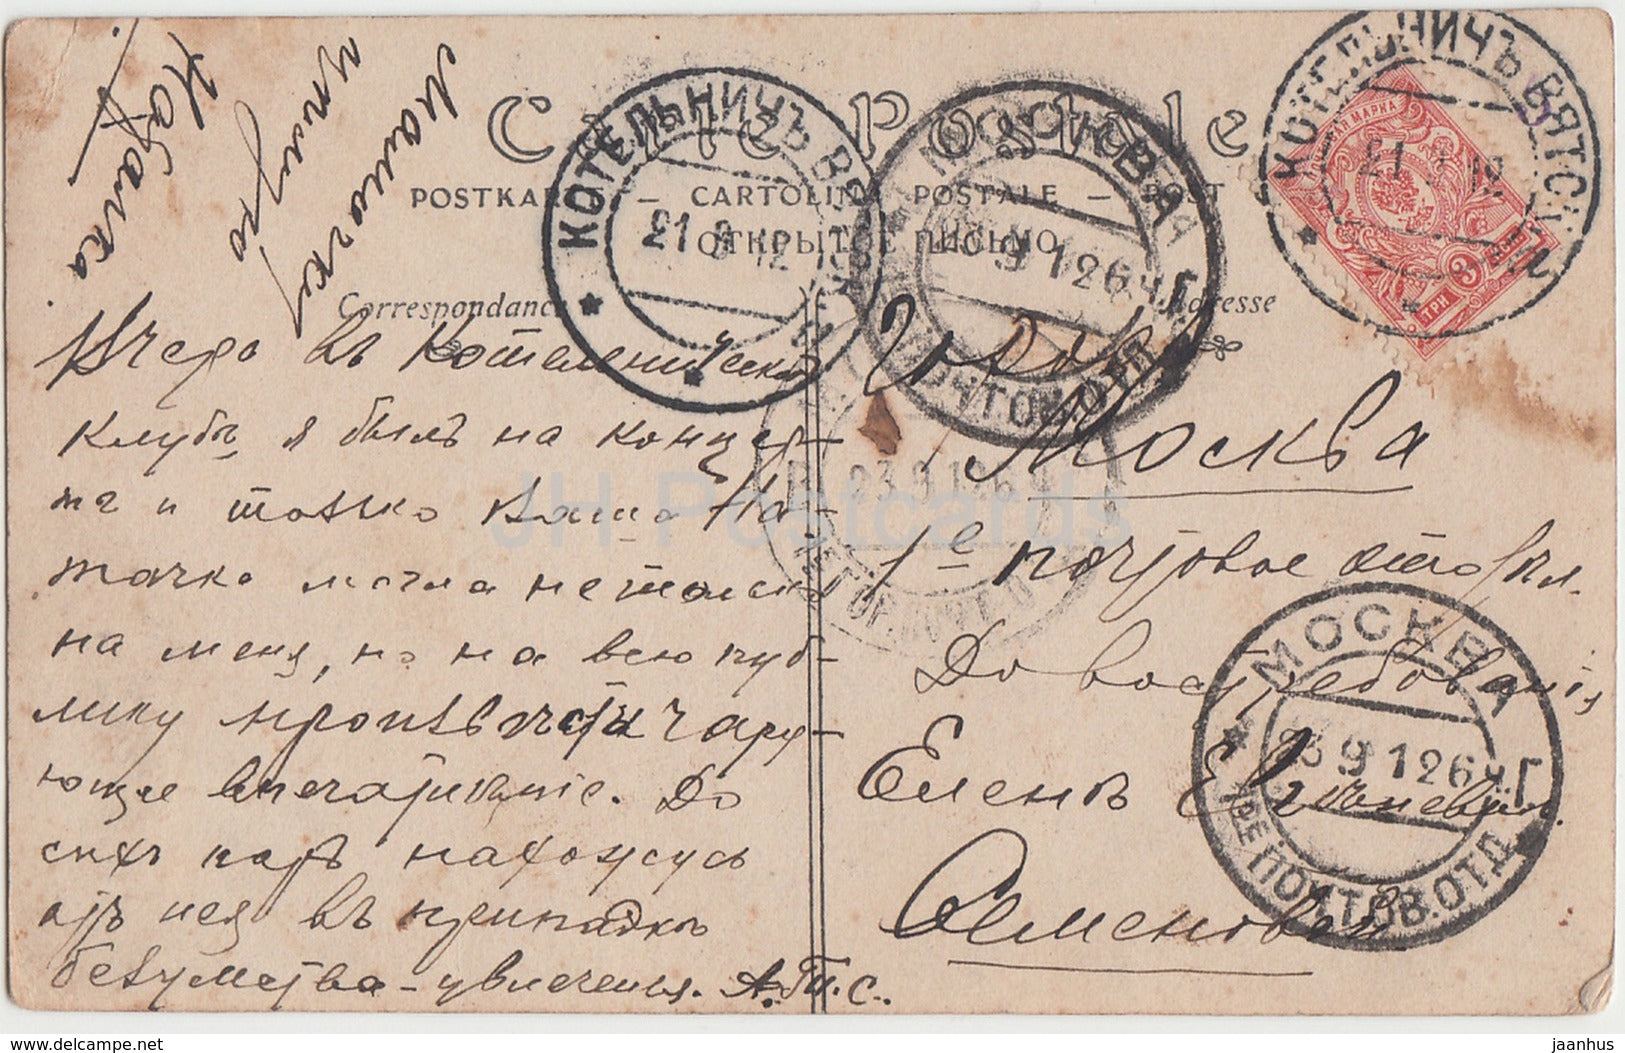 Carte Postale
POSTKARTE — CARTOLINA POSTALE — POST
ОТКРЫТОЕ ПИСЬМО
Correspondance
Adresse
КОТЕЛЬНИЧЪ ВЯТС.
21 9 12
МОСКВА
9 12 6 ч.
ПОЧТОВ. ОТД.
КОТЕЛЬНИЧЪ ВЯТС.
21 9 12
МАРКА
ТРИ 3 КОП
23 9 12 6
Вчера въ Котельническомъ
клубѣ, я былъ на концер-
тѣ и только Ваша На-
тачка могла не только
на меня, но на всю пуб-
лику произвести чару-
ющее впечатлѣніе. До
сихъ поръ нахожусь
отъ нея въ припадкѣ
безумства-увлеченья. А.Т.С.
Городъ
Москва
1е почтовое отдѣл.
До востребованія
Еленѣ
Семеновой
МОСКВА
23 9 12 6 ч.
1-е ПОЧТОВ. ОТД.
JH Postcards
https://www.delcampe.net
jaanhus